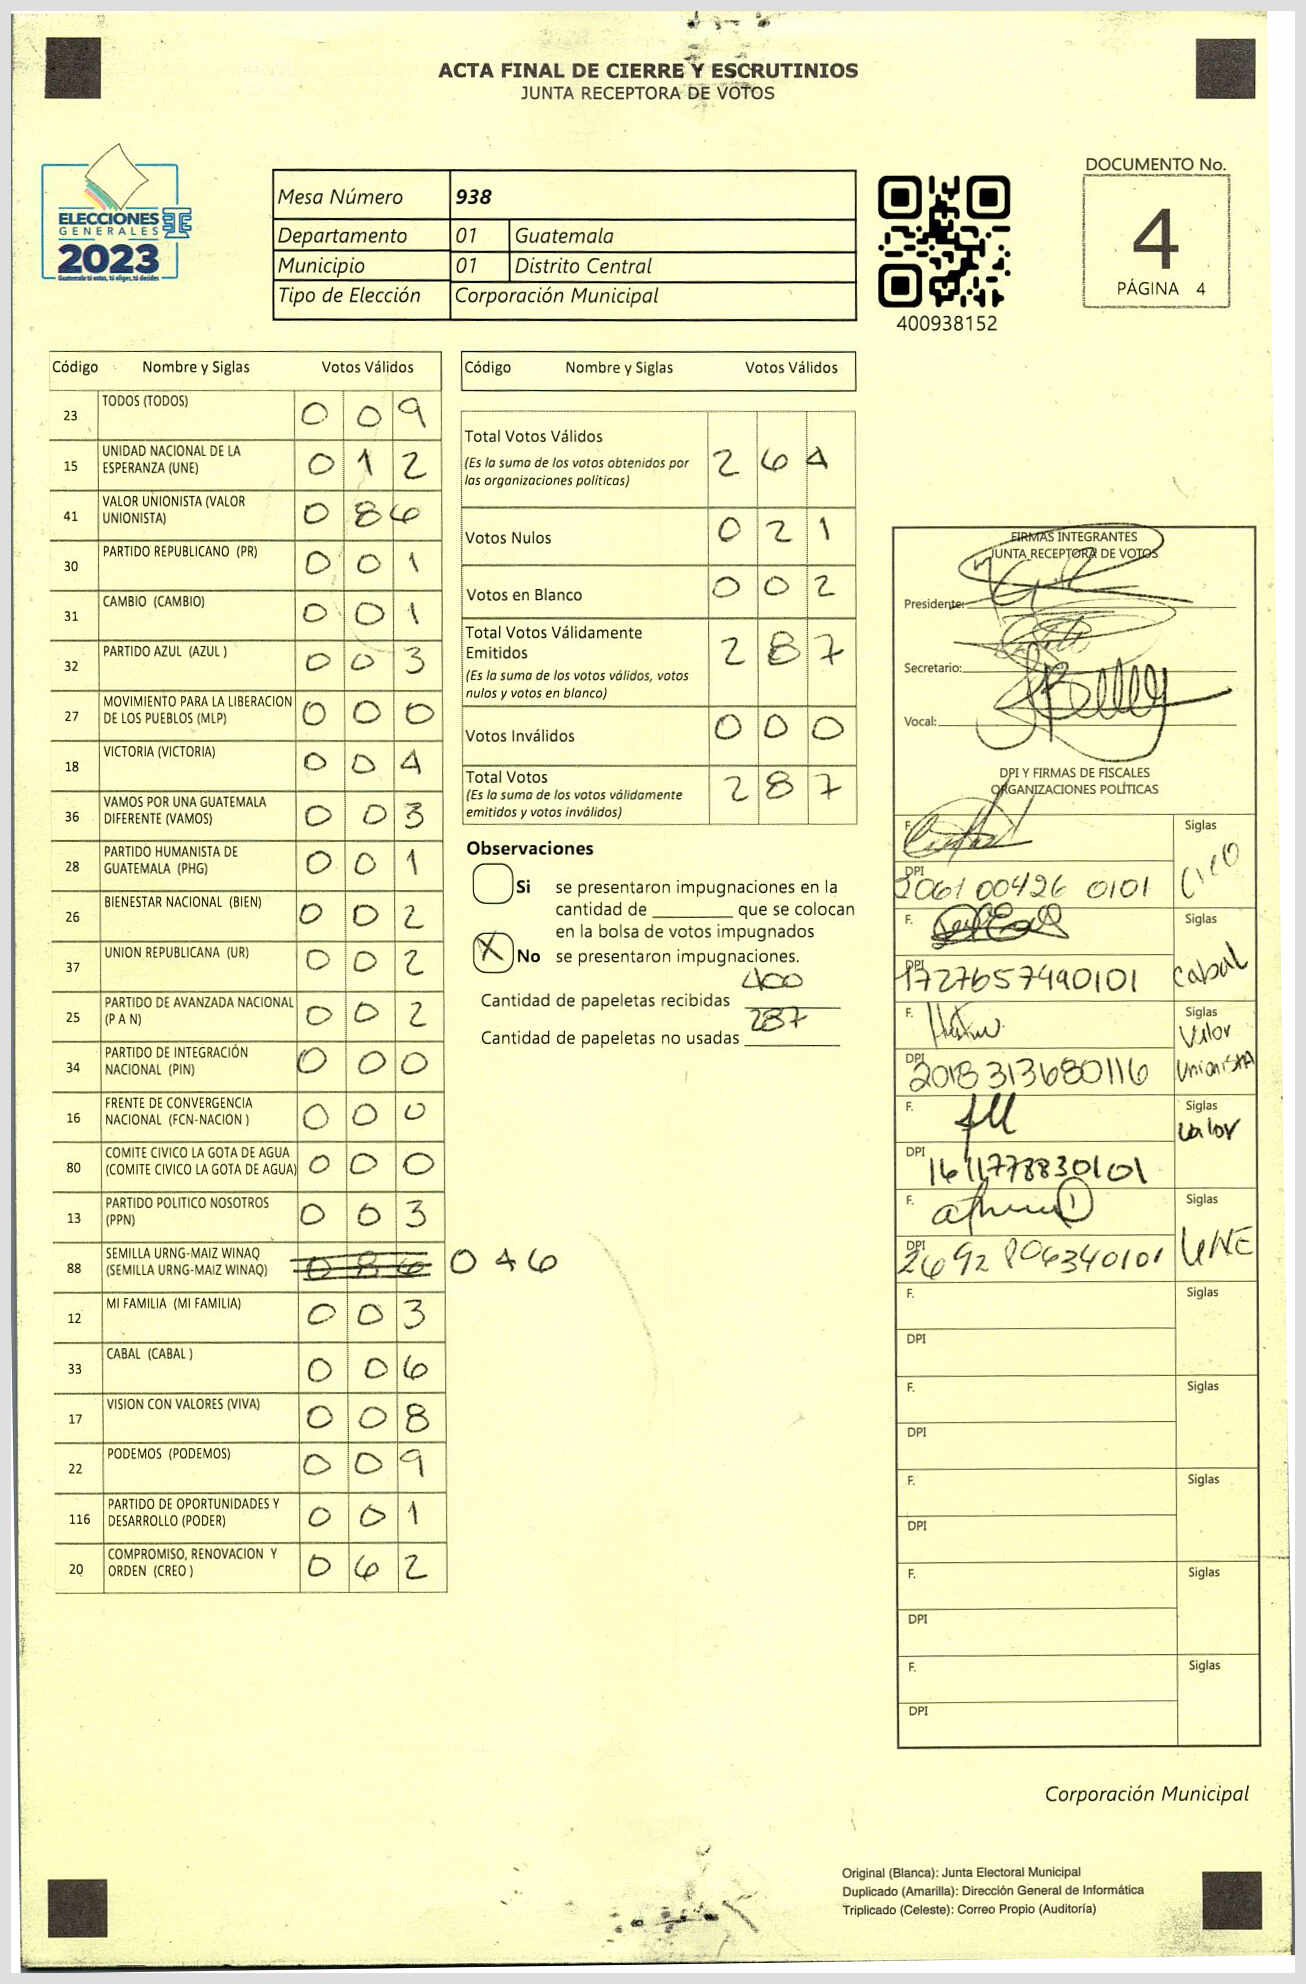 ACTA FINAL DE CIERRE Y ESCRUTINIOS
JUNTA RECEPTORA DE VOTOS
ELECCIONES
GENERALES
2023
Guatemala tú votas, tú eliges, tú decides
Mesa Número 938
Departamento 01 Guatemala
Municipio 01 Distrito Central
Tipo de Elección Corporación Municipal
400938152
DOCUMENTO No.
4
PÁGINA 4
Código Nombre y Siglas Votos Válidos
23 TODOS (TODOS) 0 0 9
15 UNIDAD NACIONAL DE LA
ESPERANZA (UNE) 0 1 2
41 VALOR UNIONISTA (VALOR
UNIONISTA) 0 8 6
30 PARTIDO REPUBLICANO (PR) 0 0 1
31 CAMBIO (CAMBIO) 0 0 1
32 PARTIDO AZUL (AZUL ) 0 0 3
27 MOVIMIENTO PARA LA LIBERACION
DE LOS PUEBLOS (MLP) 0 0 0
18 VICTORIA (VICTORIA) 0 0 4
36 VAMOS POR UNA GUATEMALA
DIFERENTE (VAMOS) 0 0 3
28 PARTIDO HUMANISTA DE
GUATEMALA (PHG) 0 0 1
26 BIENESTAR NACIONAL (BIEN) 0 0 2
37 UNION REPUBLICANA (UR) 0 0 2
25 PARTIDO DE AVANZADA NACIONAL
(P A N) 0 0 2
34 PARTIDO DE INTEGRACIÓN
NACIONAL (PIN) 0 0 0
16 FRENTE DE CONVERGENCIA
NACIONAL (FCN-NACION ) 0 0 0
80 COMITE CIVICO LA GOTA DE AGUA
(COMITE CIVICO LA GOTA DE AGUA) 0 0 0
13 PARTIDO POLITICO NOSOTROS
(PPN) 0 0 3
88 SEMILLA URNG-MAIZ WINAQ
(SEMILLA URNG-MAIZ WINAQ) 0 8 6 0 4 6
12 MI FAMILIA (MI FAMILIA) 0 0 3
33 CABAL (CABAL ) 0 0 6
17 VISION CON VALORES (VIVA) 0 0 8
22 PODEMOS (PODEMOS) 0 0 9
116 PARTIDO DE OPORTUNIDADES Y
DESARROLLO (PODER) 0 0 1
20 COMPROMISO, RENOVACION Y
ORDEN (CREO ) 0 6 2
Código Nombre y Siglas Votos Válidos
Total Votos Válidos 2 6 4
(Es la suma de los votos obtenidos por
las organizaciones políticas)
Votos Nulos 0 2 1
Votos en Blanco 0 0 2
Total Votos Válidamente
Emitidos 2 8 7
(Es la suma de los votos válidos, votos
nulos y votos en blanco)
Votos Inválidos 0 0 0
Total Votos 2 8 7
(Es la suma de los votos válidamente
emitidos y votos inválidos)
Observaciones
Si se presentaron impugnaciones en la
cantidad de ________ que se colocan
en la bolsa de votos impugnados
X No se presentaron impugnaciones.
Cantidad de papeletas recibidas 400
Cantidad de papeletas no usadas 287
FIRMAS INTEGRANTES
JUNTA RECEPTORA DE VOTOS
Presidente:
Secretario:
Vocal:
DPI Y FIRMAS DE FISCALES
ORGANIZACIONES POLÍTICAS
F. Siglas
DPI 2061 00426 0101 Creo
F. Siglas
DPI 1727657490101 Cabal
F. Siglas Valor
DPI 2018313680116 Unionista
F. Siglas Valor
DPI 1611778830101
F. Siglas
DPI 2692 806340101 UNE
F. Siglas
DPI
F. Siglas
DPI
F. Siglas
DPI
F. Siglas
DPI
F. Siglas
DPI
Corporación Municipal
Original (Blanca): Junta Electoral Municipal
Duplicado (Amarilla): Dirección General de Informática
Triplicado (Celeste): Correo Propio (Auditoría)